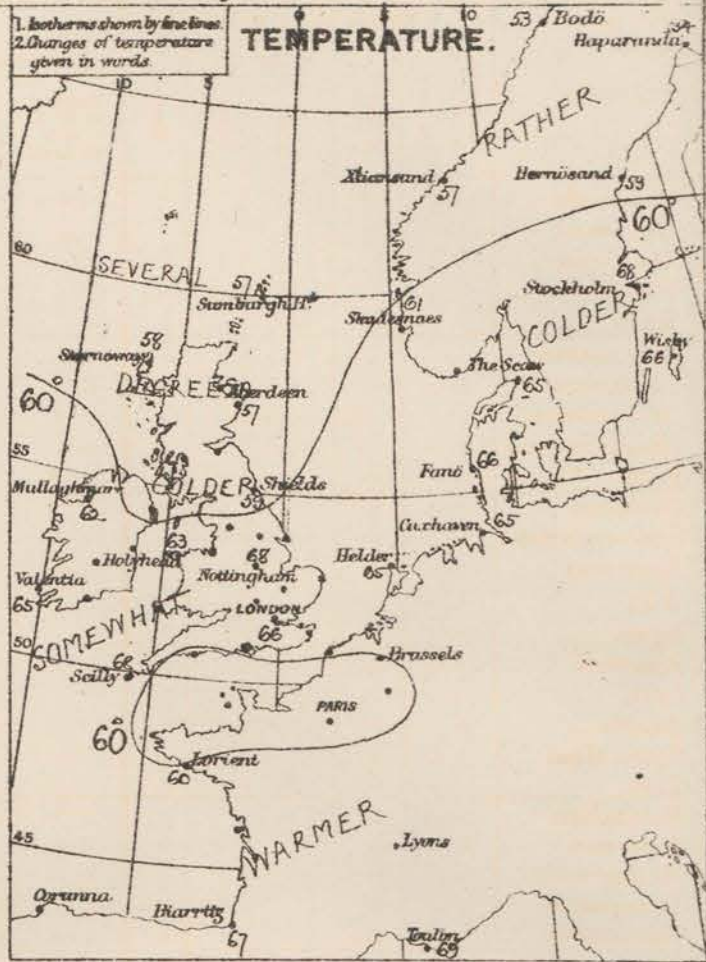 1. Isotherms shown by fine lines.
2. Changes of temperature
given in words.
TEMPERATURE.
0
5
10
10
5
53 Bodö
Haparanda
54
RATHER
Xtiansand
57
Hernösand
59
60°
60
SEVERAL
57
Sumburgh Hd.
61
Skudesnaes
68
Stockholm
COLDER
Wisby
66
58
Stornoway
The Scaw
65
60°
DEGREES
Aberdeen
57
55
Mullaghmore
62
COLDER
Shields
59
Fanö
66
Cuxhaven
65
63
Holyhead
68
Nottingham
Helder
65
Valentia
65
LONDON
66
SOMEWHAT
50
62
Scilly
Brussels
PARIS
60°
Lorient
60
WARMER
45
Lyons
Corunna
Biarritz
67
Toulon
69